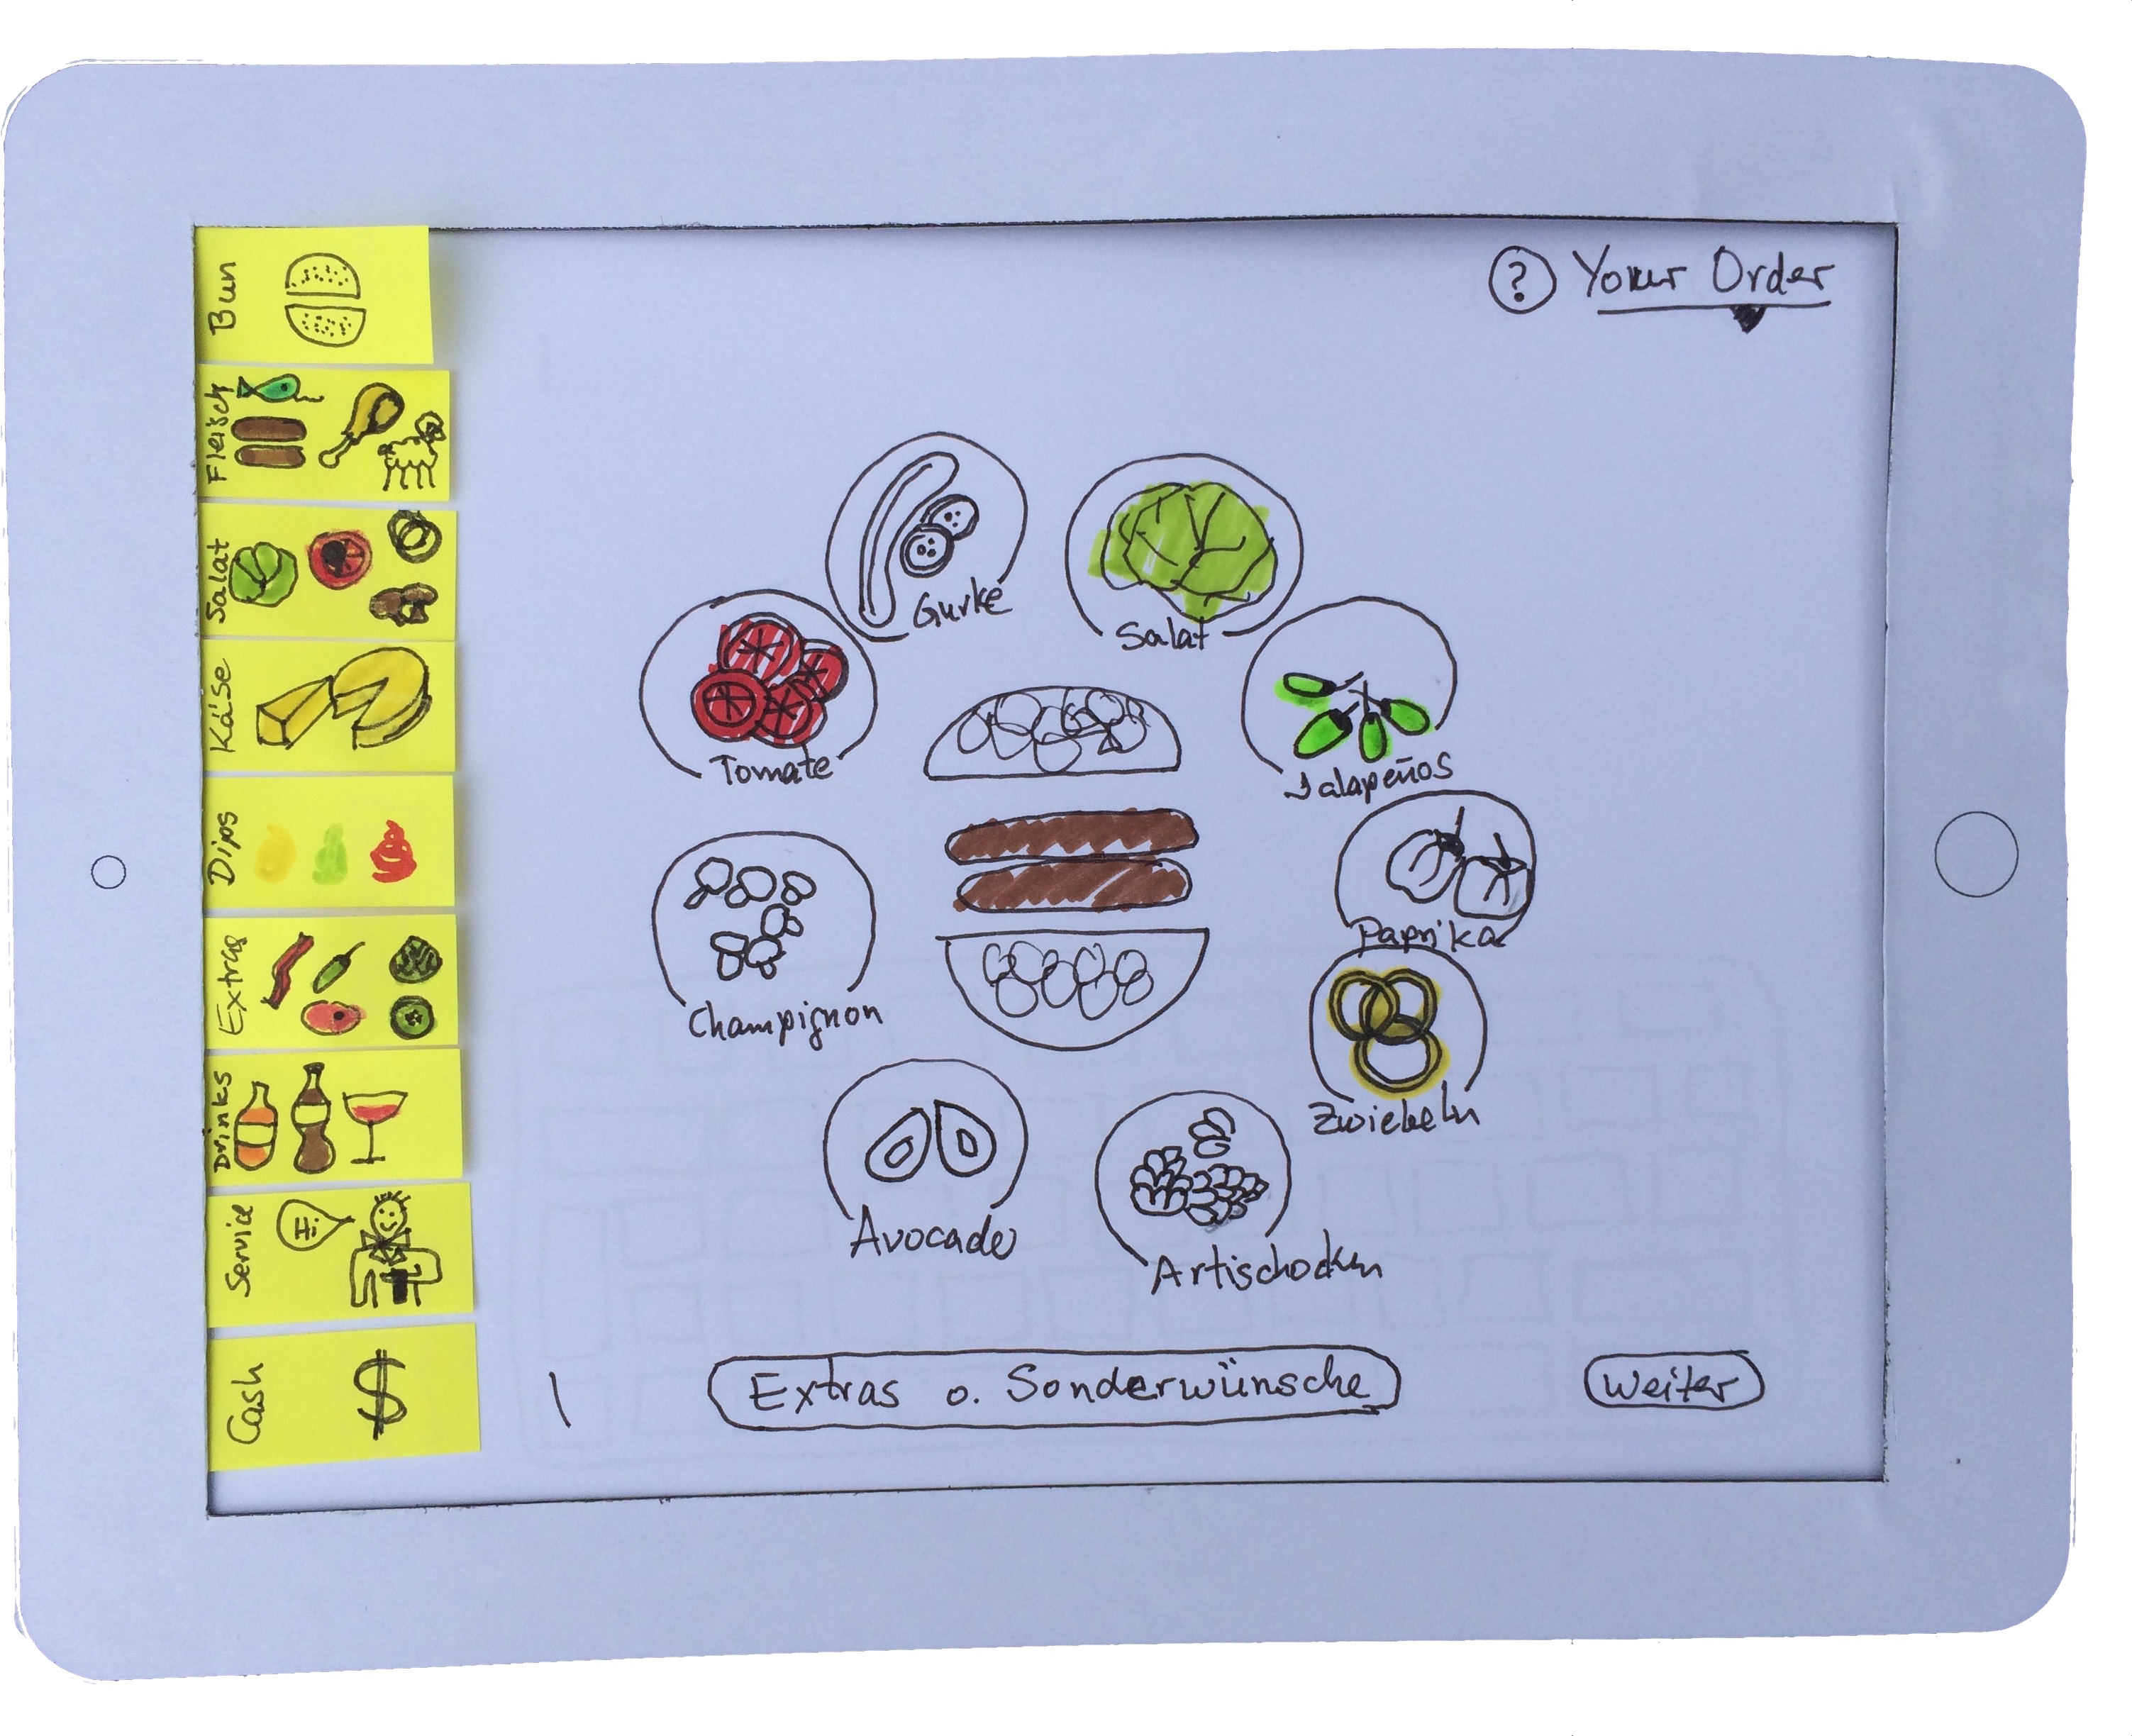 Bun
Fleisch
Salat
Käse
Dips
Extras
Drinks
Service
Hi
Cash
$
? Your Order
Gurke
Salat
Tomate
Jalapeños
Champignon
Paprika
Zwiebeln
Avocado
Artischocken
Extras o. Sonderwünsche
Weiter